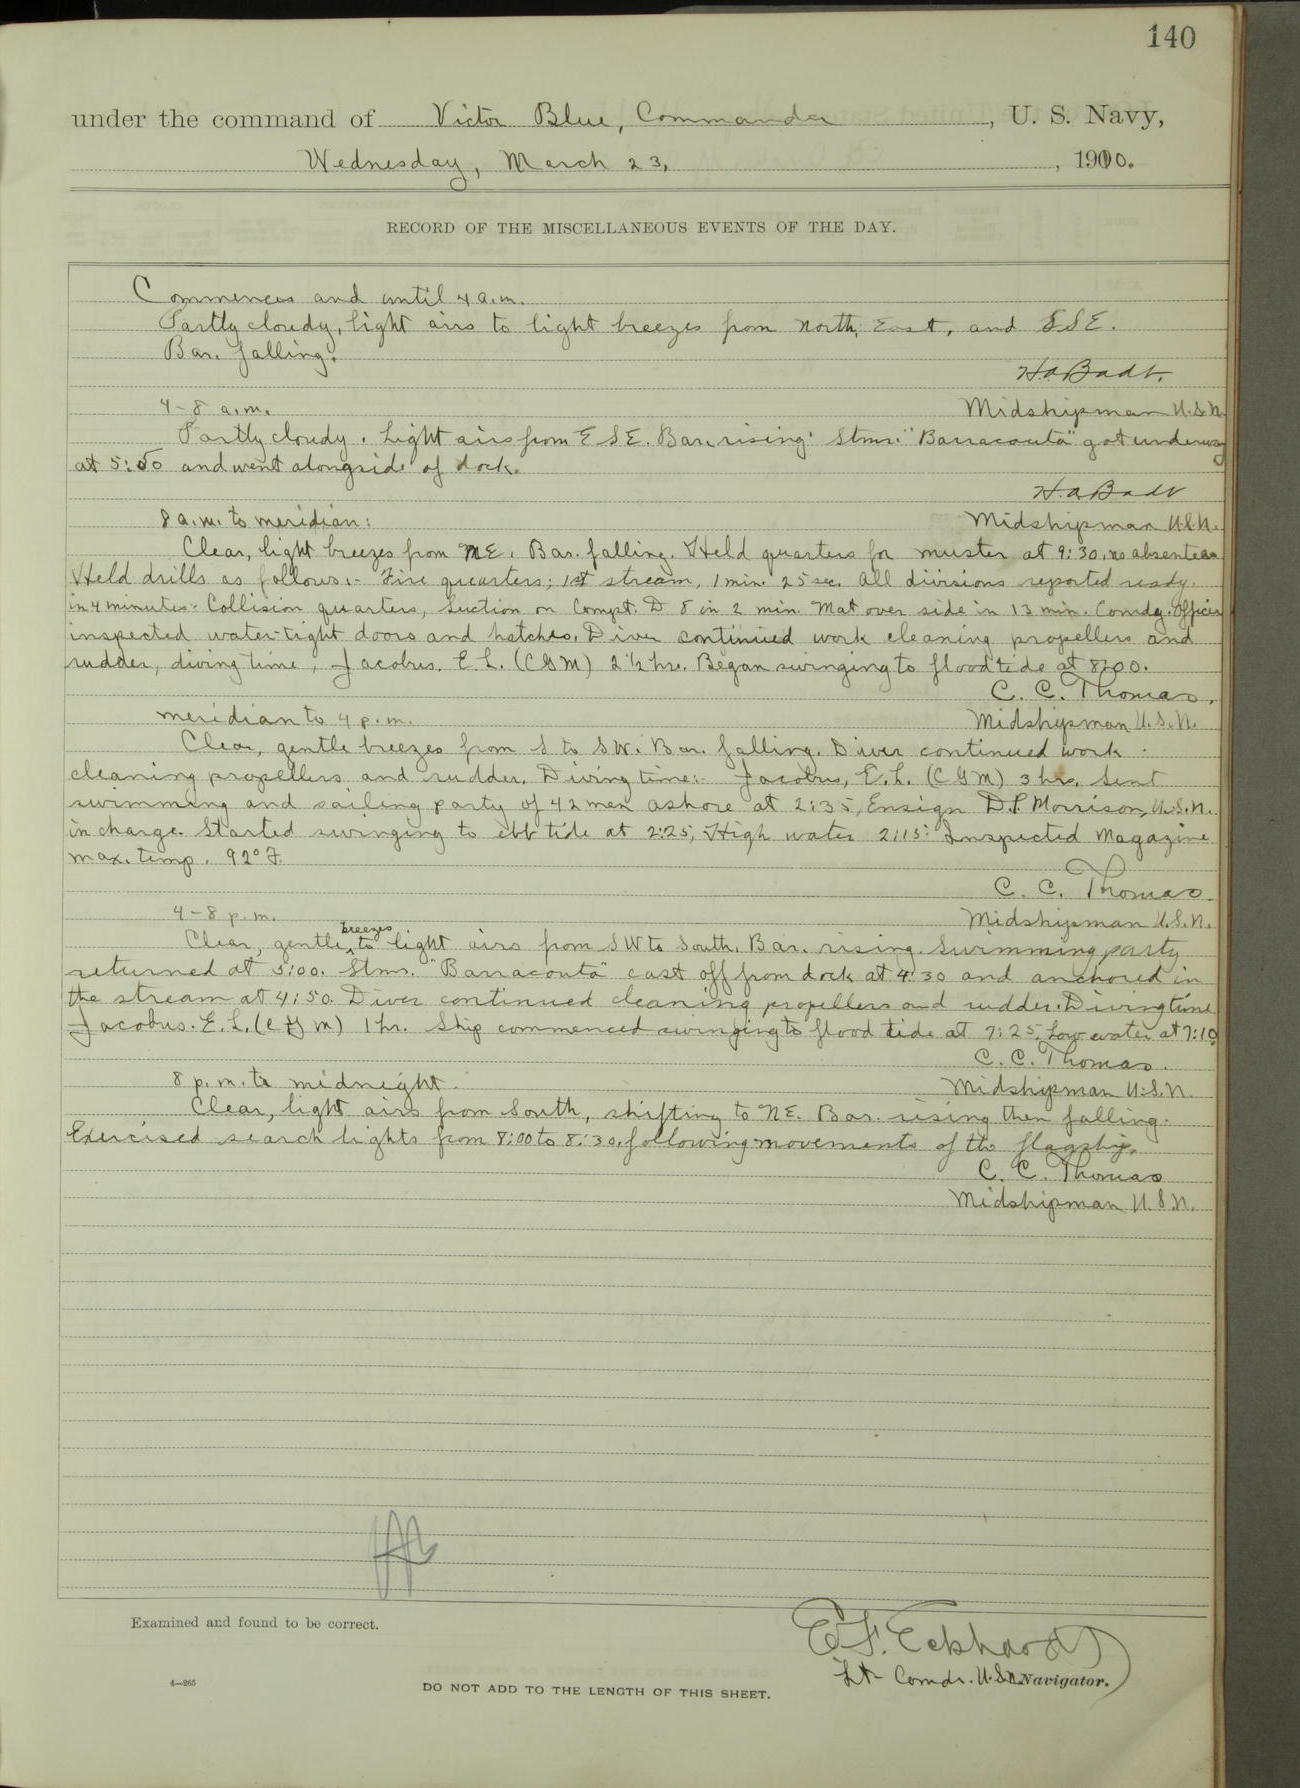 140
under the command of Victor Blue, Commander, U. S. Navy,
Wednesday, March 23, 1910.
RECORD OF THE MISCELLANEOUS EVENTS OF THE DAY.
Commences and until 4 a.m.
Partly cloudy, light airs to light breezes from North, East, and SSE.
Bar. falling.
H.a. Badt.
4-8 a.m.
Midshipman U.S.N.
Partly cloudy. Light airs from ESE. Bar. rising. Stmr. "Barracouta" got underway
at 5:50 and went alongside of dock.
H.a. Badt
8 a.m. to meridian:
Midshipman U.S.N.
Clear, light breezes from NE. Bar. falling. Held quarters for muster at 9:30, no absentees
Held drills as follows:- Fire quarters; 1st stream, 1 min. 25 sec. All divisions reported ready
in 4 minutes. Collision quarters, Suction on Compt. D 8 in 2 min. Mat over side in 13 min. Comdg. Officer
inspected water-tight doors and hatches. Diver continued work cleaning propellers and
rudder, diving time, Jacobus. E.L. (CGM) 2 1/2 hrs. Began swinging to flood tide at 8:00.
C. C. Thomas.
meridian to 4 p.m.
Midshipman U.S.N.
Clear, gentle breezes from S to SW. Bar. falling. Diver continued work
cleaning propellers and rudder. Diving time:- Jacobus, E.L. (CGM) 3 hrs. Sent
swimming and sailing party of 42 men ashore at 2:35, Ensign D.P. Morrison, U.S.N.
in charge. Started swinging to ebb tide at 2:25, High water 2:15. Inspected Magazine
max. temp. 92° F.
C. C. Thomas
4-8 p.m.
Midshipman U.S.N.
Clear, gentle breezes to light airs from SW to South. Bar. rising. Swimming party
returned at 5:00. Stmr. "Barracouta" cast off from dock at 4:30 and anchored in
the stream at 4:50. Diver continued cleaning propellers and rudder. Diving time
Jacobus. E.L. (CGM) 1 hr. Ship commenced swinging to flood tide at 7:25, Low water at 7:10
C. C. Thomas.
8 p.m. to midnight.
Midshipman U.S.N.
Clear, light airs from South, shifting to NE. Bar. rising then falling.
Exercised search lights from 8:00 to 8:30, following movements of the flagship.
C. C. Thomas
Midshipman U.S.N.
Examined and found to be correct.
E. F. Eckhardt
Lt- Comdr. U.S.N. Navigator.
4—265
DO NOT ADD TO THE LENGTH OF THIS SHEET.